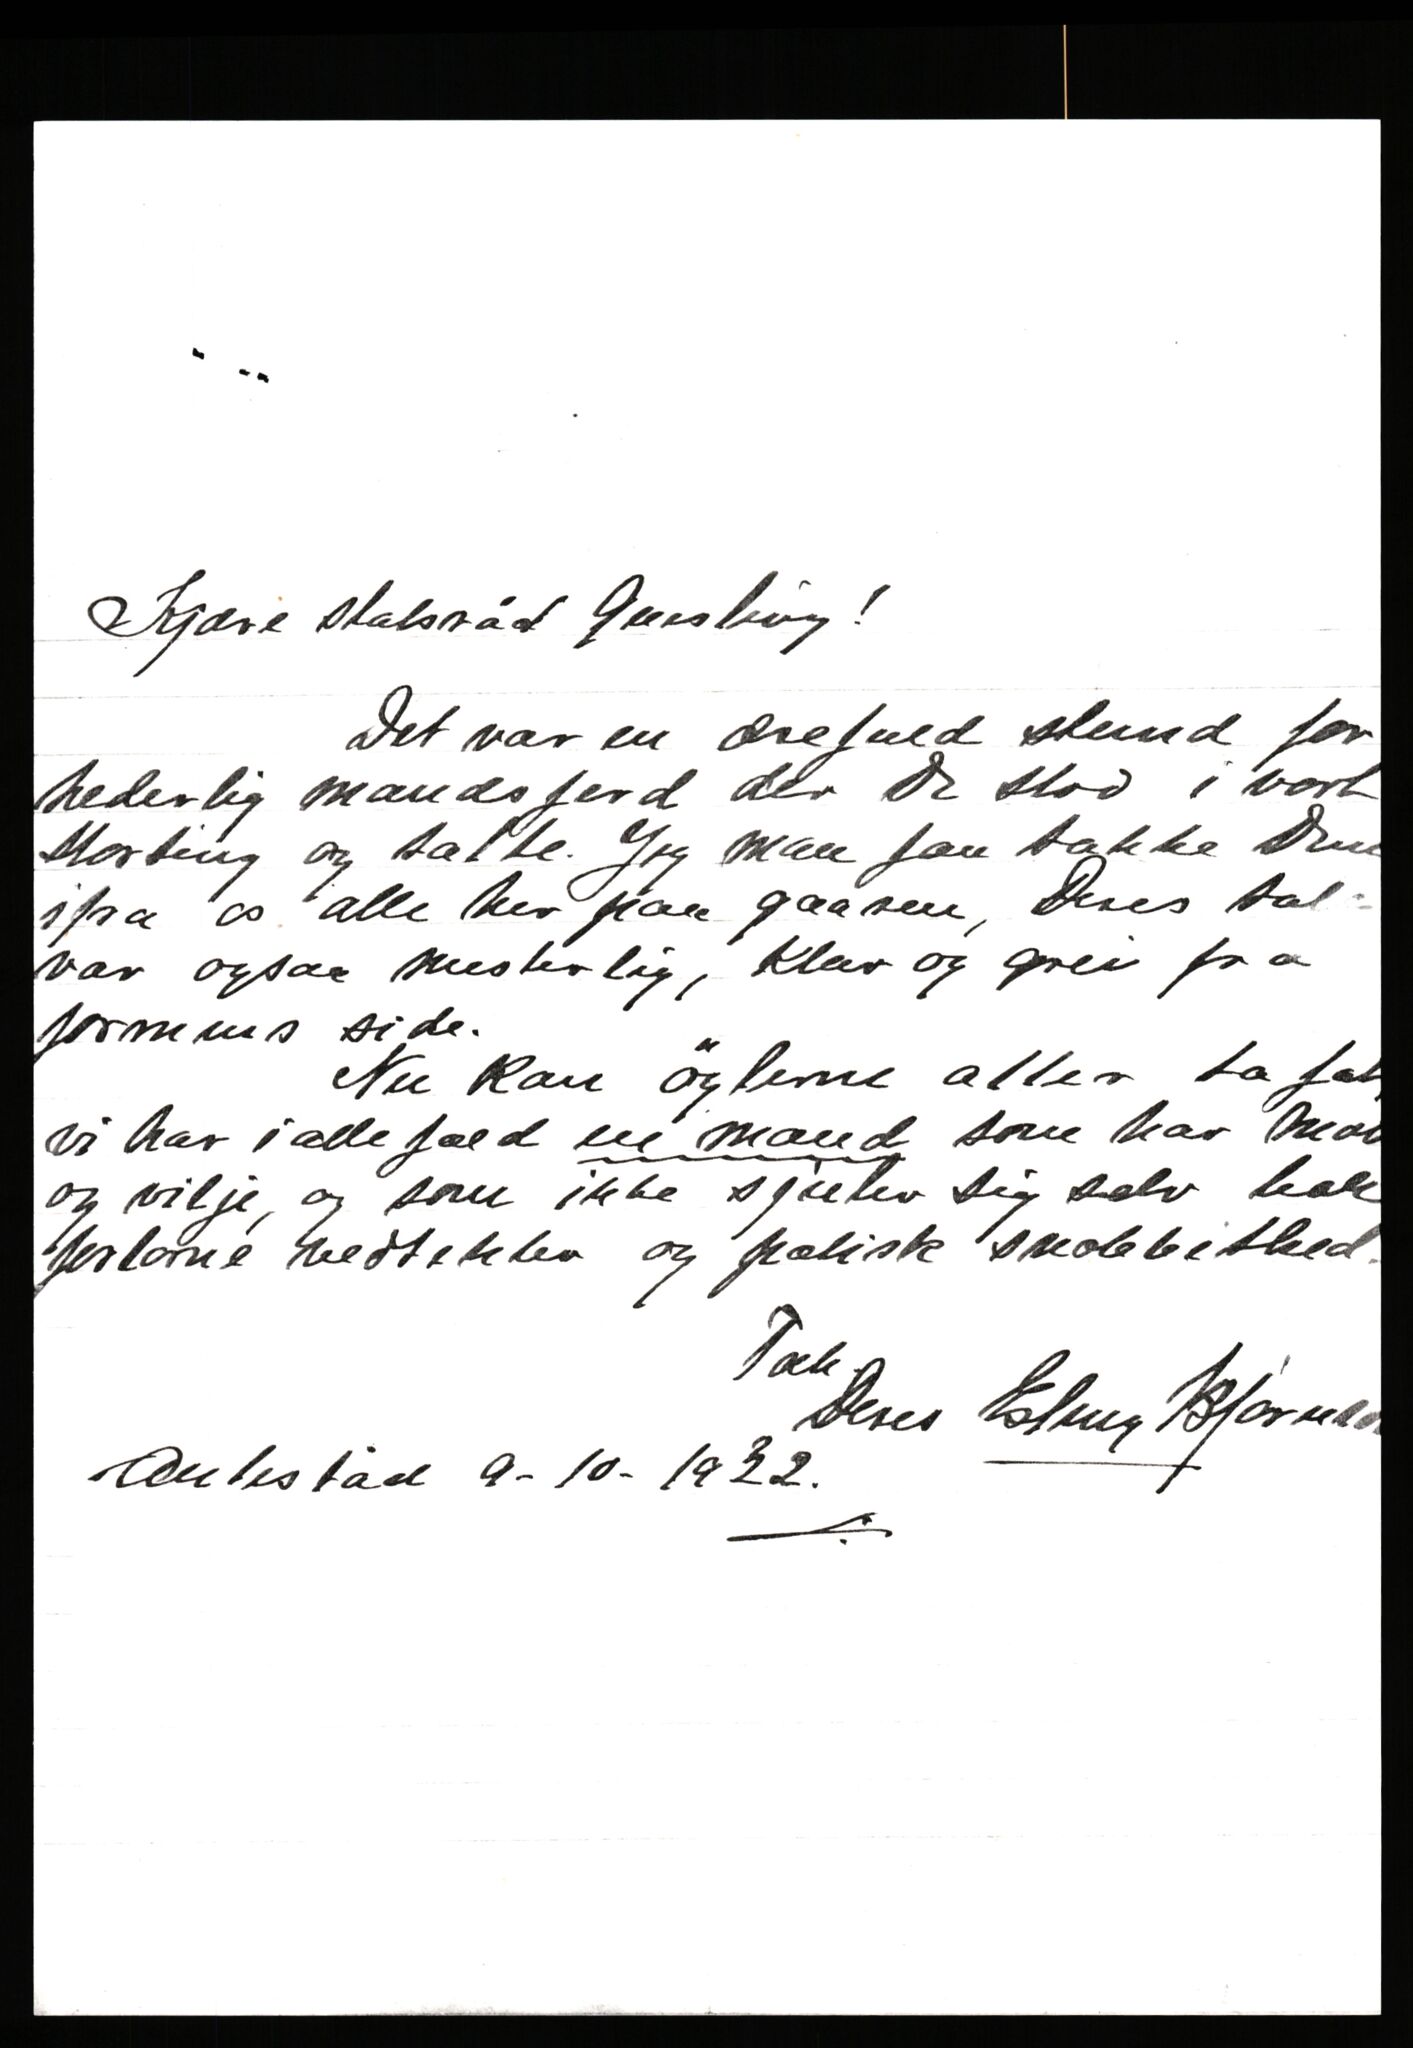 Kjære statsråd Quisling!
Det var en ærefuld stund for
hederlig mandsferd der De stod i vort
storting og talte. Jeg maa faa takke Dem
ifra os alle her paa gaarden, Deres tal
var ogsaa mesterlig, klar og grei fra
formens side.
Nu kan öglerne atter ta fat,
vi har i allefald en mand som har mod
og vilje, og som ikke stjæler sig selv bak
forlorne vedtekter og politisk snobbethed.
Tak.
Deres Erling Bjørnson
Aulestad 9-10-1932.